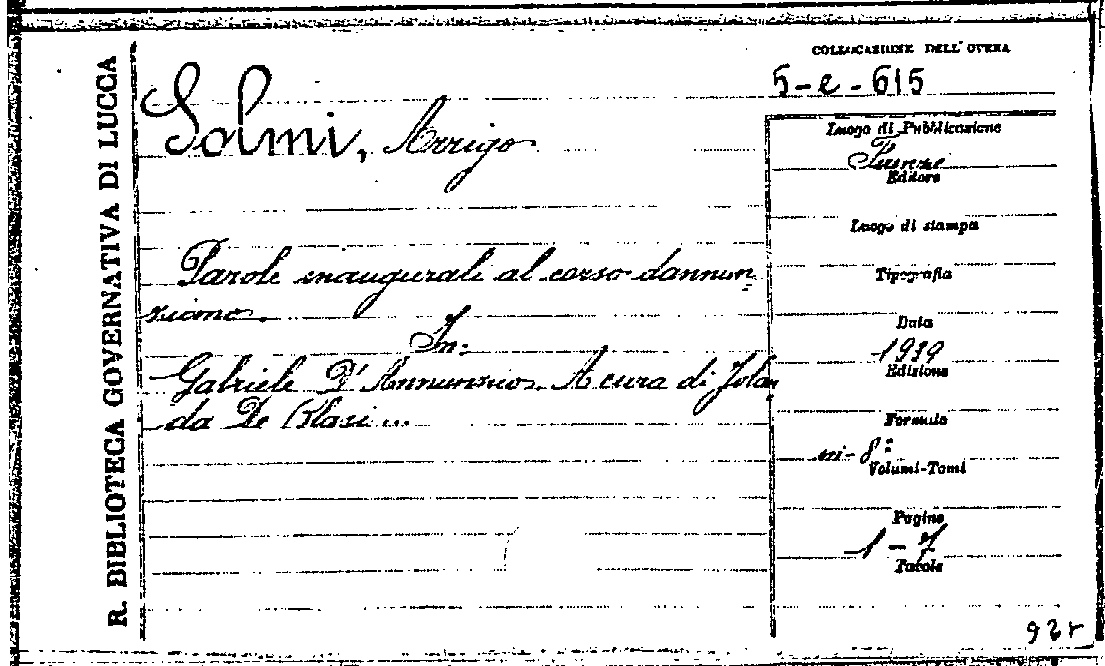 R. BIBLIOTECA GOVERNATIVA DI LUCCA
COLLOCAZIONE DELL'OPERA
5-e-615
Solmi, Arrigo
Parole inaugurali al corso dannun
ziano.
In:
Gabriele D'Annunzio. A cura di Jolan
da De Blasi...
Luogo di Pubblicazione
Firenze
Editore
Luogo di stampa
Tipografia
Data
1939
Edizione
Formato
in-8:
Volumi-Tomi
Pagine
1-7
Tavole